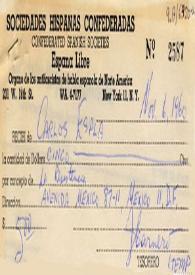 SOCIEDADES HISPANAS CONFEDERADAS
CONFEDERATED SPANISH SOCIETIES
España Libre
Organo de los antifascistas de habla española de Norte America
231 W. 18th St. WA. 4-7177 New York 11, N. Y.
Nº 2587
Nov. 6, 1962
RECIBI de CARLOS ESPLÁ
la cantidad de Dollars CINCO
por concepto de
Dirección AVENIDA MEXICO MEXICO 11, D.F.
$ 5.00
TESORERO